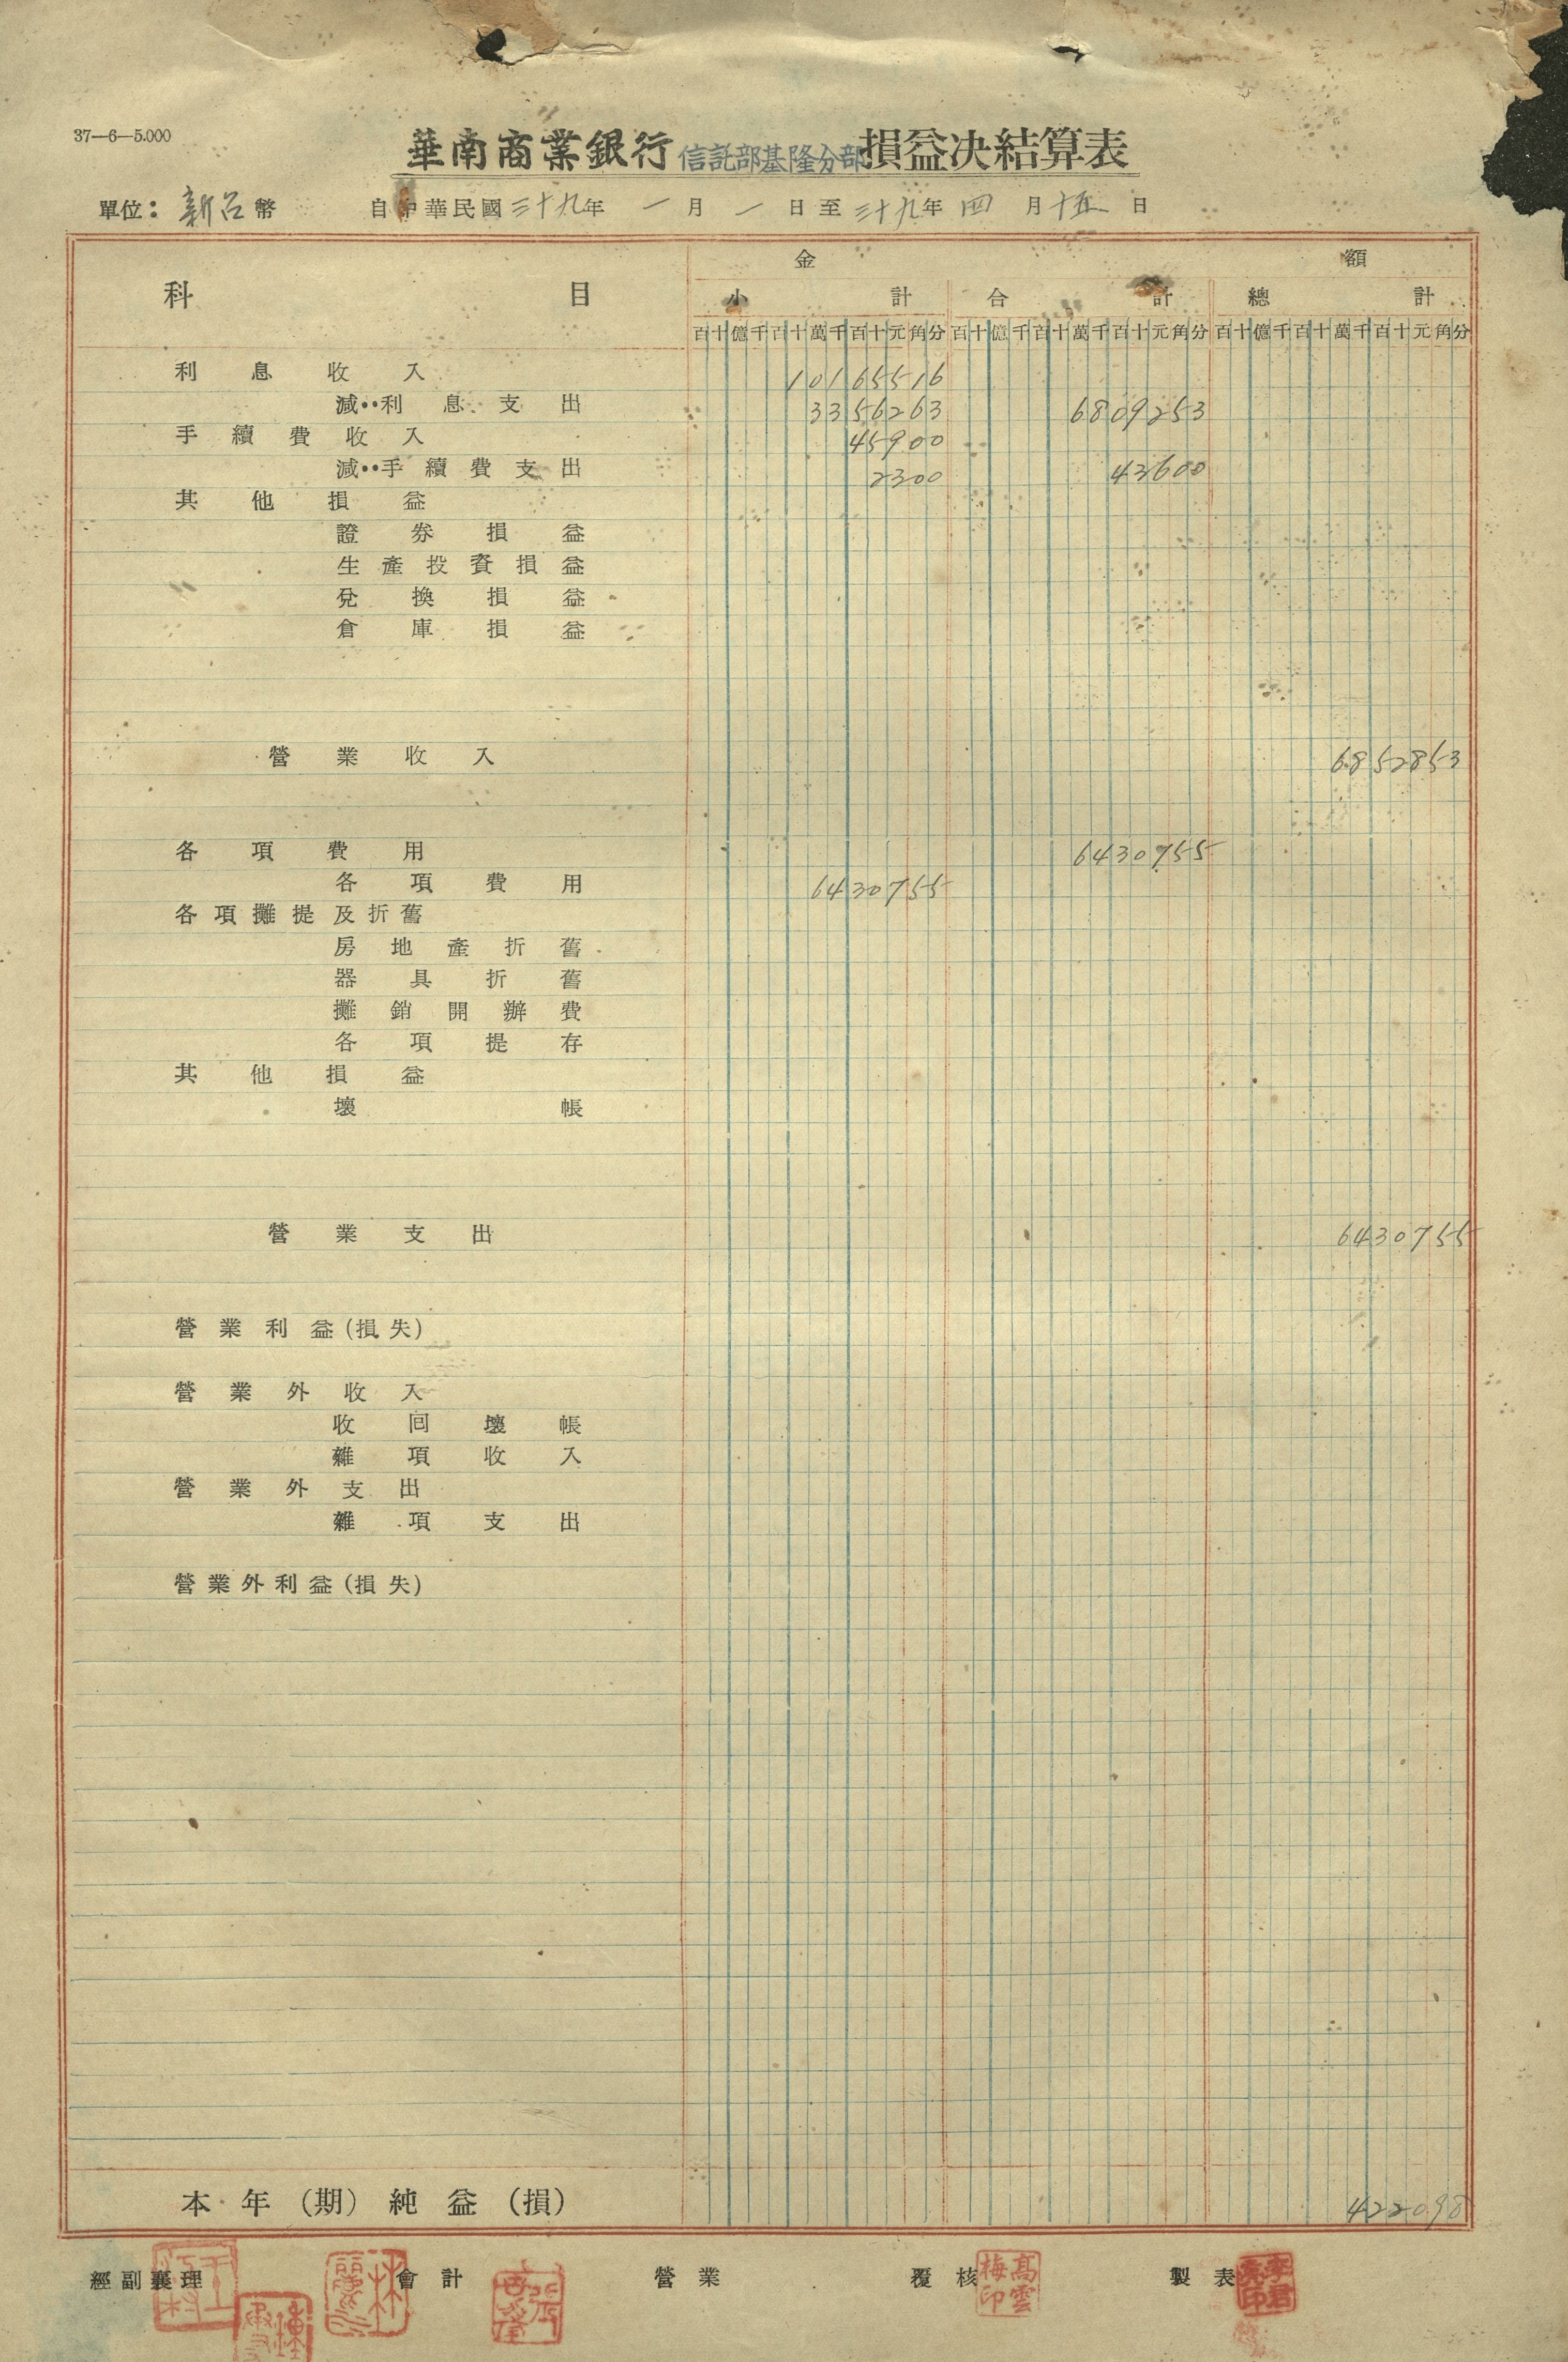 37—6—5.000
華南商業銀行信託部基隆分部損益決結算表
單位：新台幣 自中華民國三十九年一月一日至三十九年四月十五日
科目 金額
小計 合計 總計
百十億千百十萬千百十元角分 百十億千百十萬千百十元角分 百十億千百十萬千百十元角分
利息收入 10165516
減··利息支出 3356263 6809253
手續費收入 45900
減··手續費支出 2300 43600
其他損益
證券損益
生產投資損益
兌換損益
倉庫損益
營業收入 6852853
各項費用 6430755
各項費用 6430755
各項攤提及折舊
房地產折舊
器具折舊
攤銷開辦費
各項提存
其他損益
壞帳
營業支出 6430755
營業利益(損失)
營業外收入
收回壞帳
雜項收入
營業外支出
雜項支出
營業外利益(損失)
本年(期)純益(損) 422098
經副襄理 會計 營業 覆核 高雲梅印 製表